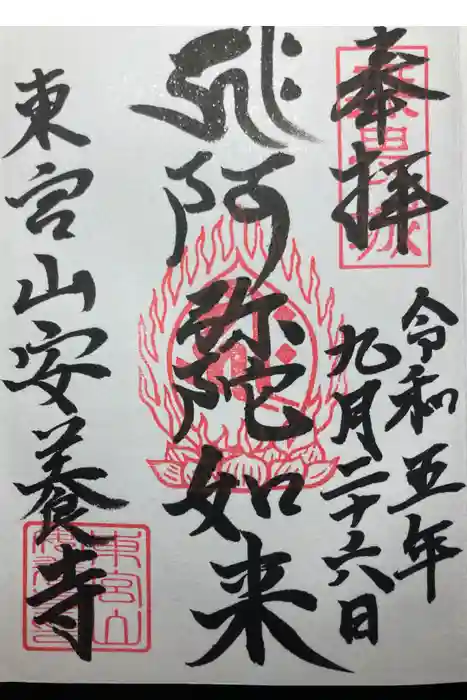 奉拝
令和五年
九月二十六日
阿弥陀如来
東宮山安養寺
東宮山